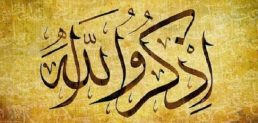 اذْكُرُوا اللَّهَ